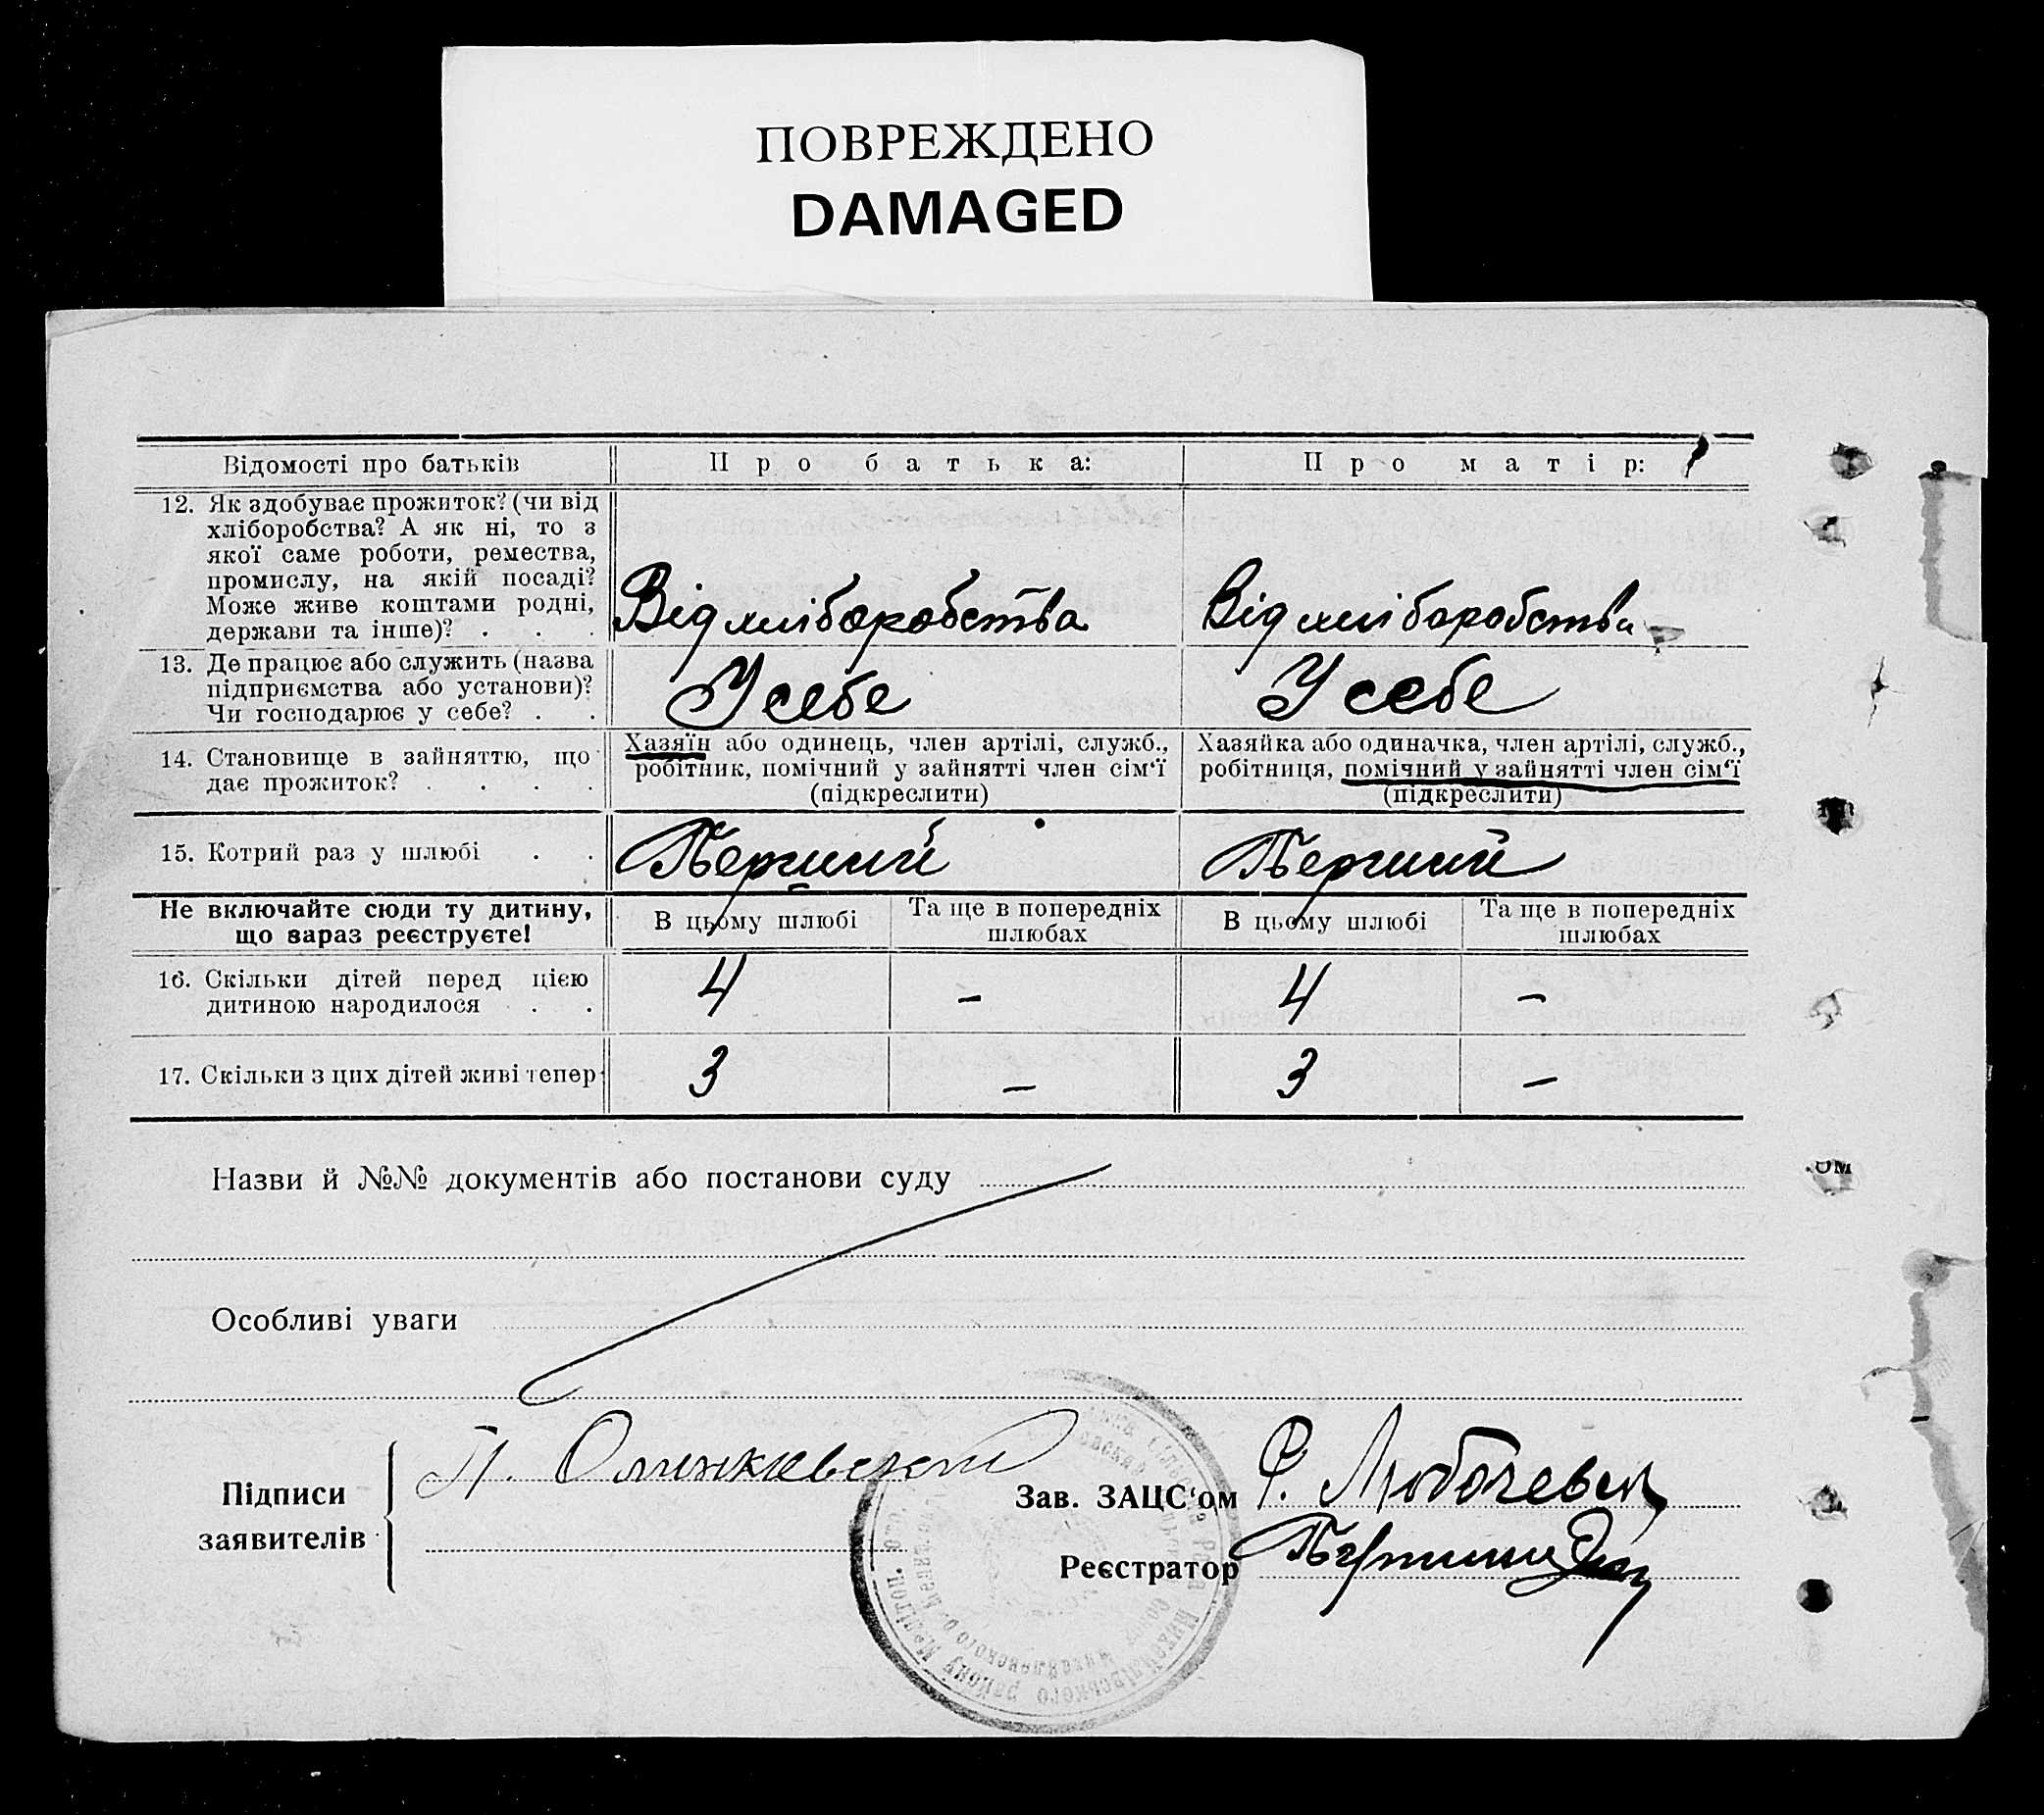 ПОВРЕЖДЕНО
DAMAGED
Відомості про батьків
Про батька:
Про матір:
12. Як здобуває прожиток? (чи від
хліборобства? А як ні, то з
якої саме роботи, ремества,
промислу, на якій посаді?
Може живе коштами родні,
держави та інше)? . . .
Від хліборобства
Від хліборобства
13. Де працює або служить (назва
підприємства або установи)?
Чи господарює у себе? . .
У себе
У себе
14. Становище в зайняттю, що
дає прожиток? . . . .
Хазяїн або одинець, член артілі, служб.,
робітник, помічний у зайнятті член сім‘ї
(підкреслити)
Хазяйка або одиначка, член артілі, служб.,
робітниця, помічний у зайнятті член сім‘ї
(підкреслити)
15. Котрий раз у шлюбі . .
Перший
Перший
Не включайте сюди ту дитину,
що зараз реєструєте!
В цьому шлюбі
Та ще в попередніх
шлюбах
В цьому шлюбі
Та ще в попередніх
шлюбах
16. Скільки дітей перед цією
дитиною народилося . .
4
–
4
–
17. Скільки з цих дітей живі тепер
3
–
3
–
Назви й №№ документів або постанови суду
Особливі уваги
Підписи
заявителів
П.
Зав. ЗАЦС‘ом Ф.
Реєстратор
Михайлівського району